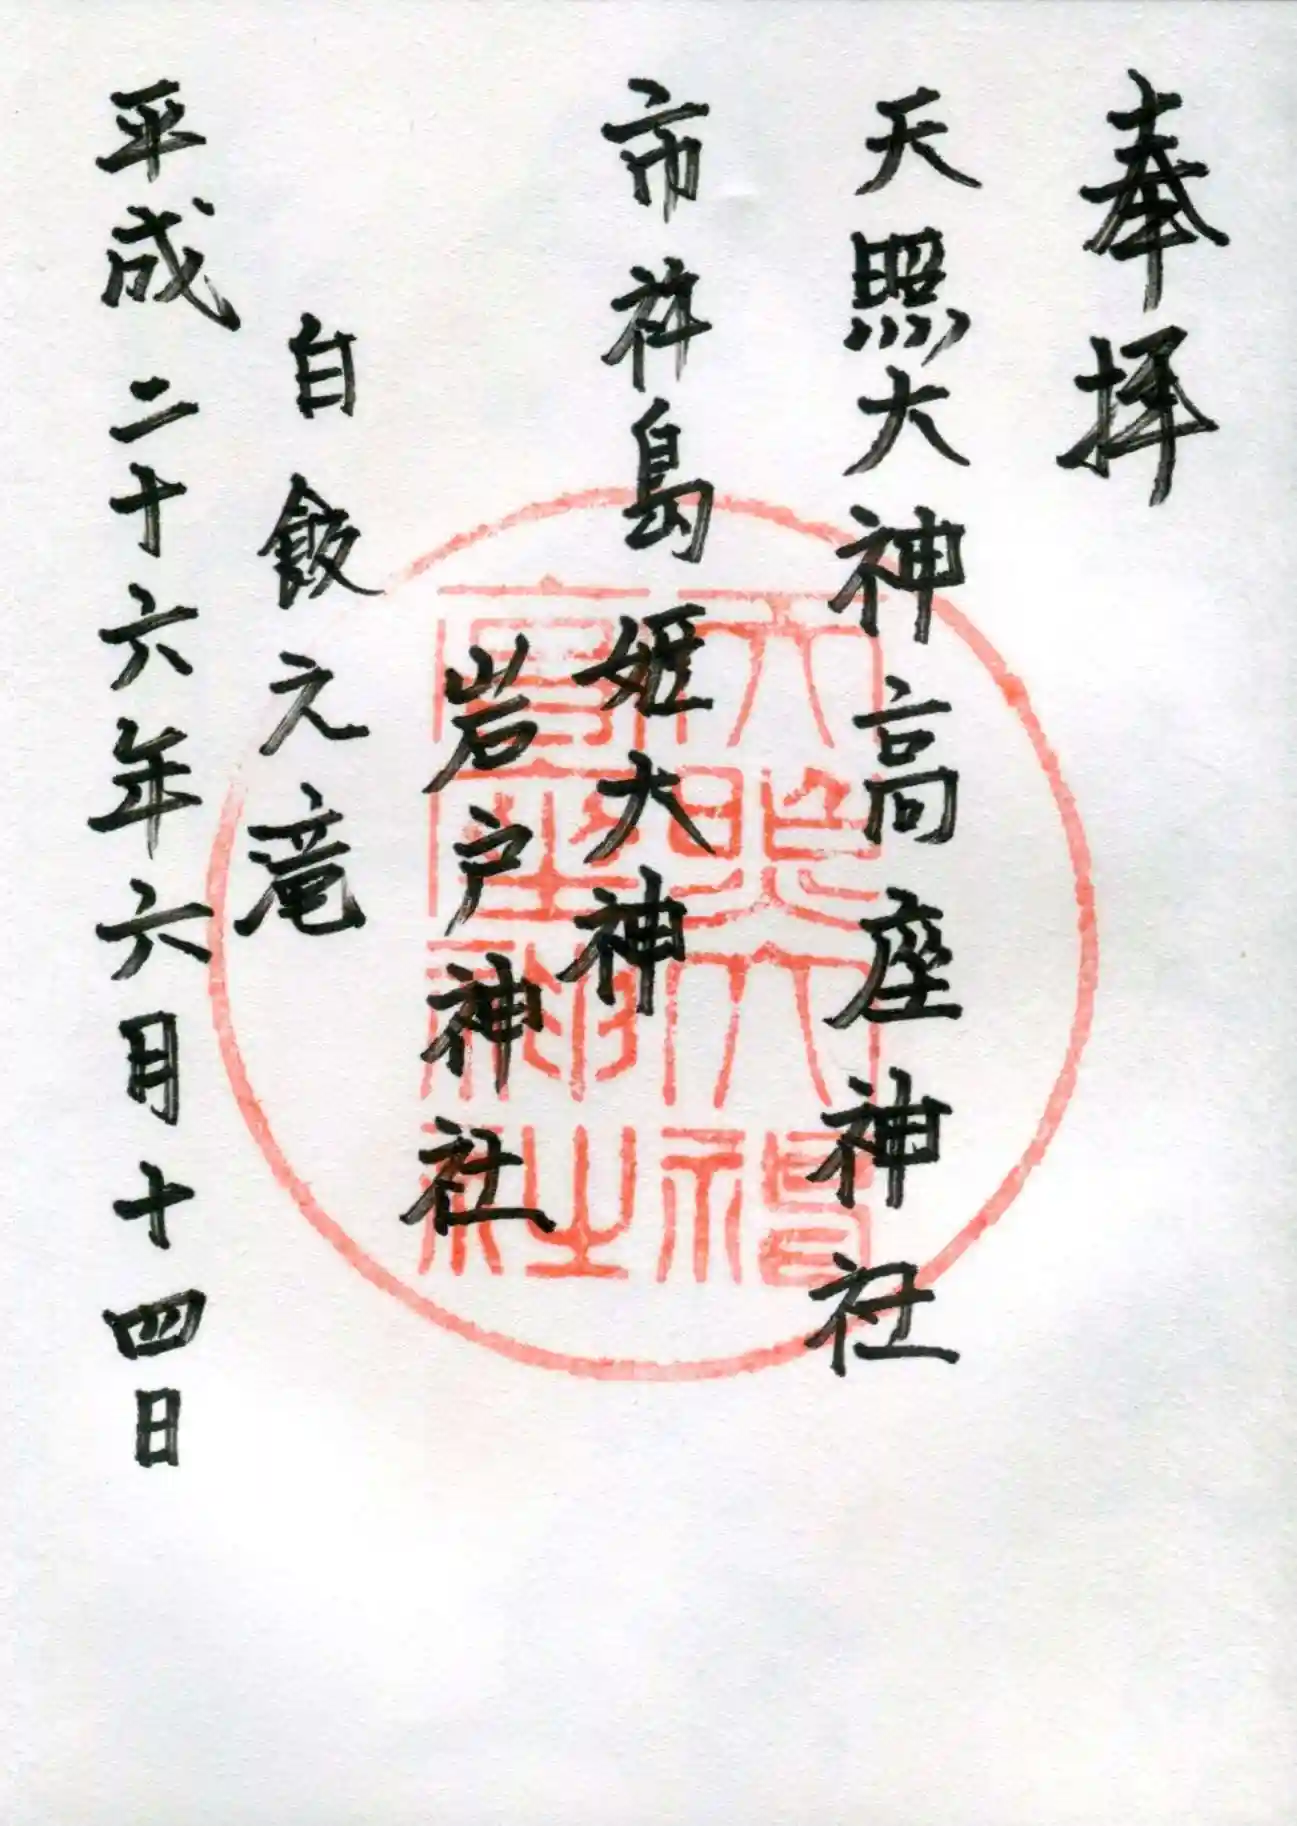 奉拝
天照大神高座神社
市杵島姫大神
岩戸神社
白飯之滝
平成二十六年六月十四日
天照大神
高座神社